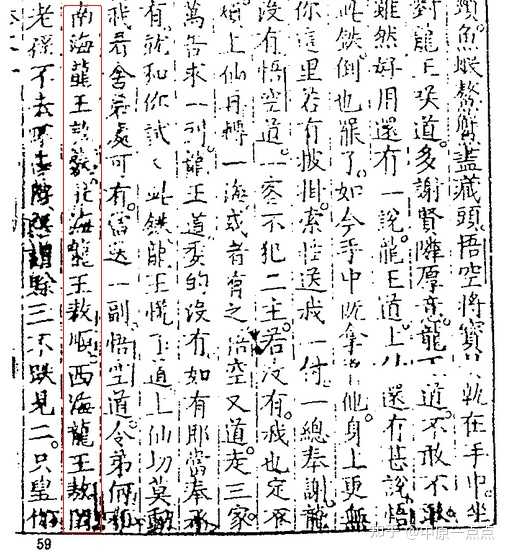 頸魚蝦鰲蟹盡藏頭。悟空將寶執在手中坐
對龍王笑道。多謝賢隣厚意。龍道。不敢不敢
雖然好用。還有一說。龍王道上仙還有甚說。悟
此鉄倒也罷了。如今手中既拿着他。身上更無
你這里若有披掛索性送我一付。一總奉謝。龍
沒有。悟空道。一客不犯二主。若沒有。我也定不
煩上仙再轉一海。或者有之。悟空又道。走三家
萬告求一副。龍王道。委的沒有。如有即當奉承
有。就和你試〻此鉄。龍王慌了道。上仙切莫動
我看舍弟處可有。當送一副。悟空道。令弟何
南海龍王敖欽。北海龍王敖順。西海龍王敖閏
老孫不去不去。賒三不跌見二。只望你
59
知乎 @中原一点点